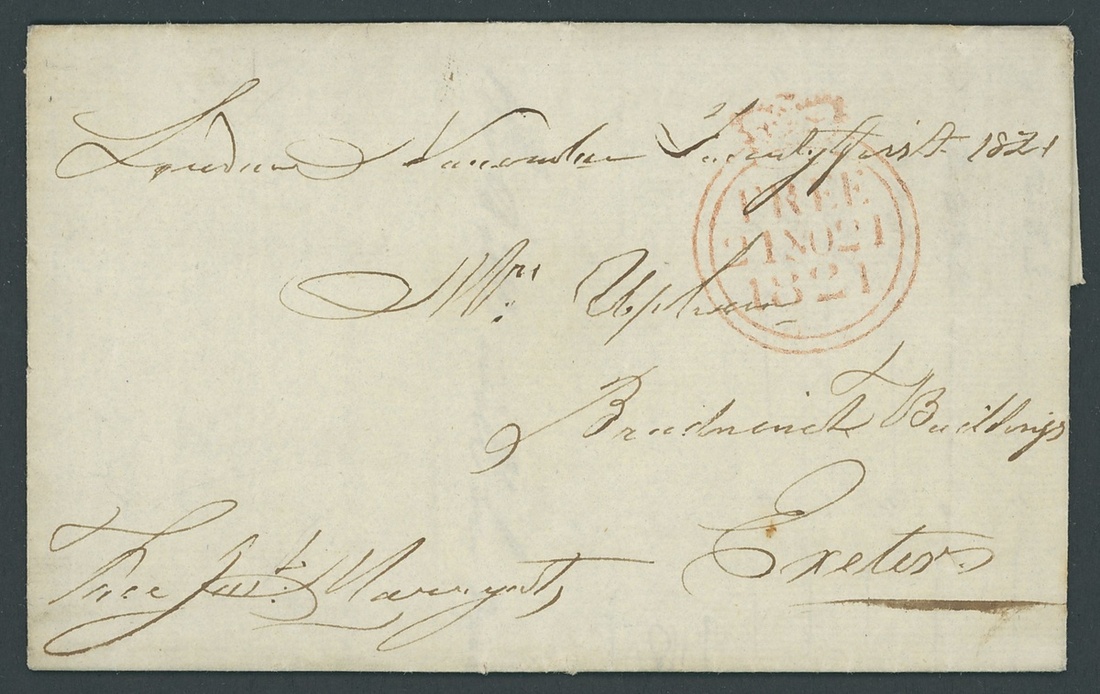 London November Twenty first 1821
FREE
21 NO 21
1821
Mrs Upham
Bradninch Buildings
Exeter
Free Jas.